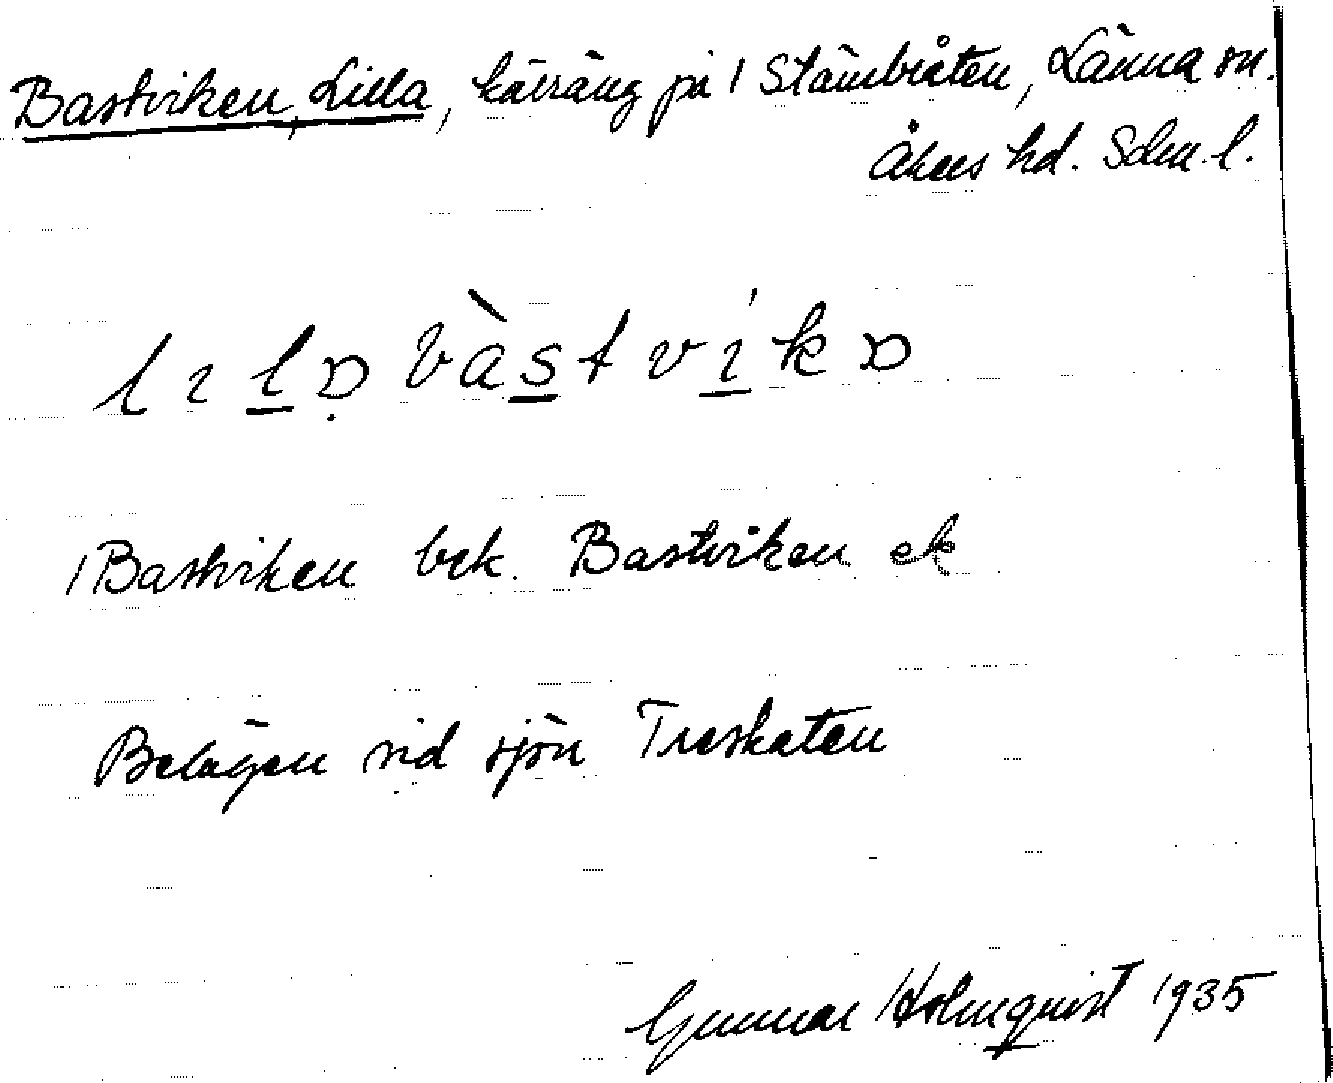 Bastviken, Lilla, kärräng på /Stämbråten, Länna sn.
Åkers hd. Sdm. l.
lılɒ bàstvíkɒ
/Bastviken bek. Bastviken ek
Belägen vid sjön Treskaten
Gunnar Holmquist 1935